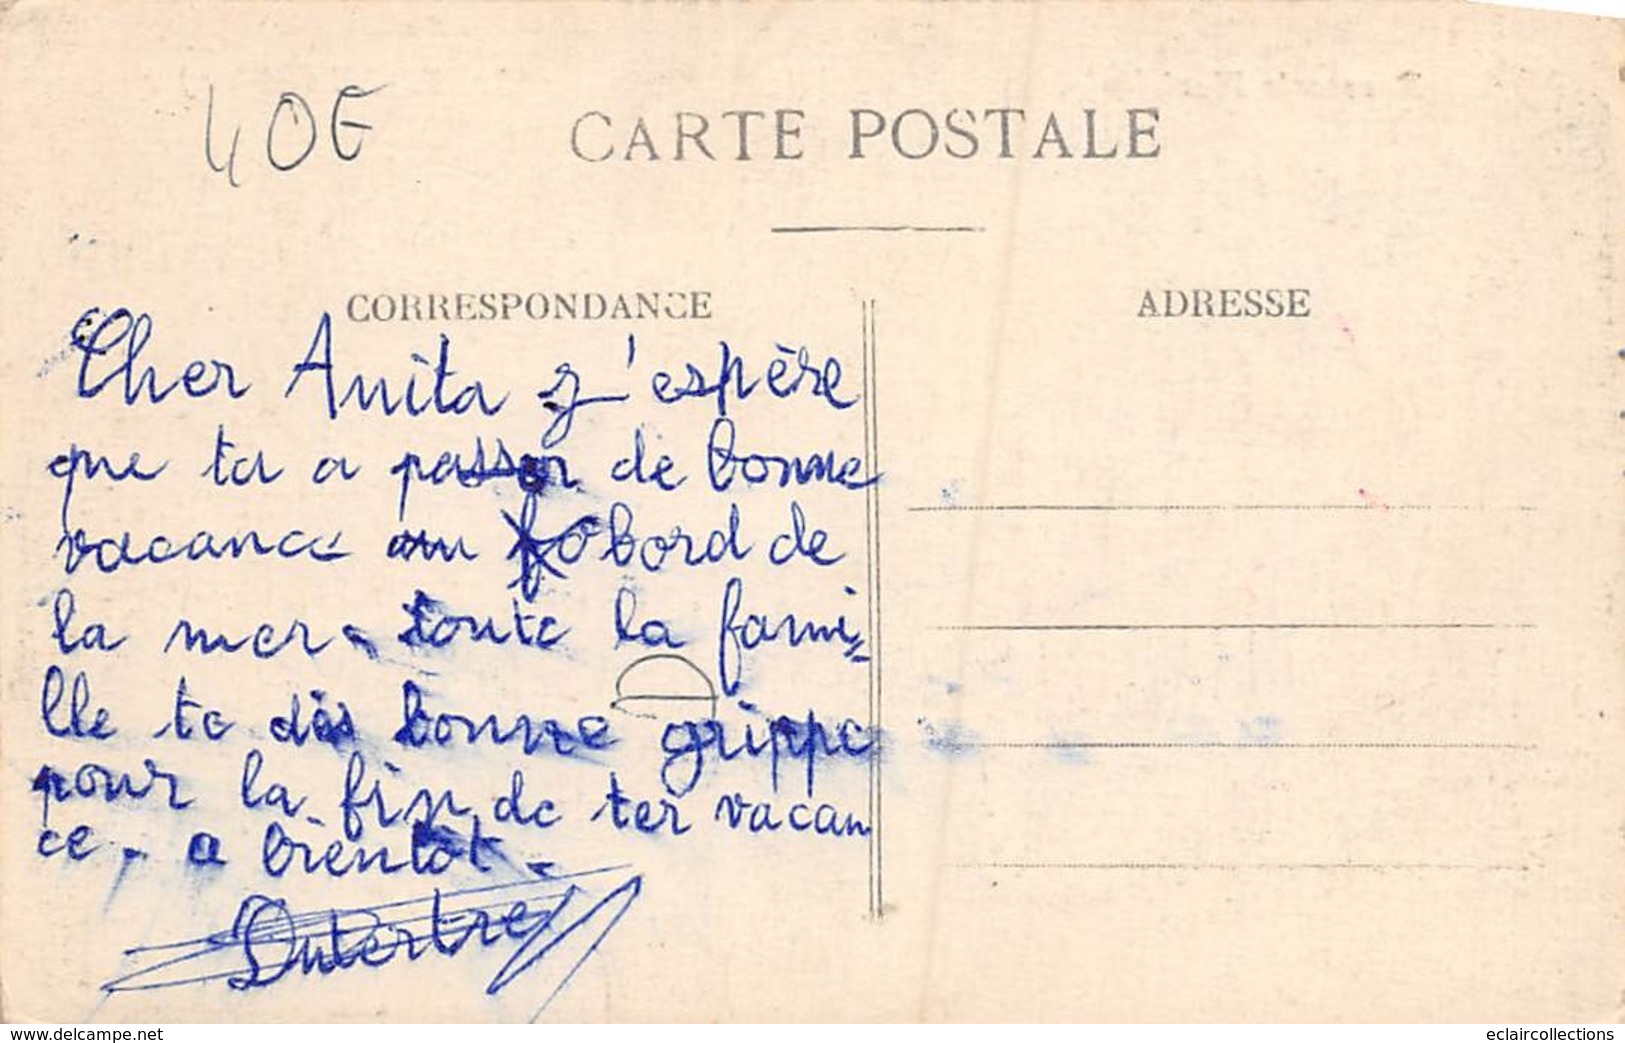 40€
CARTE POSTALE
CORRESPONDANCE
ADRESSE
Cher Anita j'espère
que ta a passer de bonne
vacance au bord de
la mer. toute la fami=
lle te dis bonne grippe
pour la fin de ter vacan
ce. a bientôt.
D
Dutertre
www.delcampe.net
eclaircollections